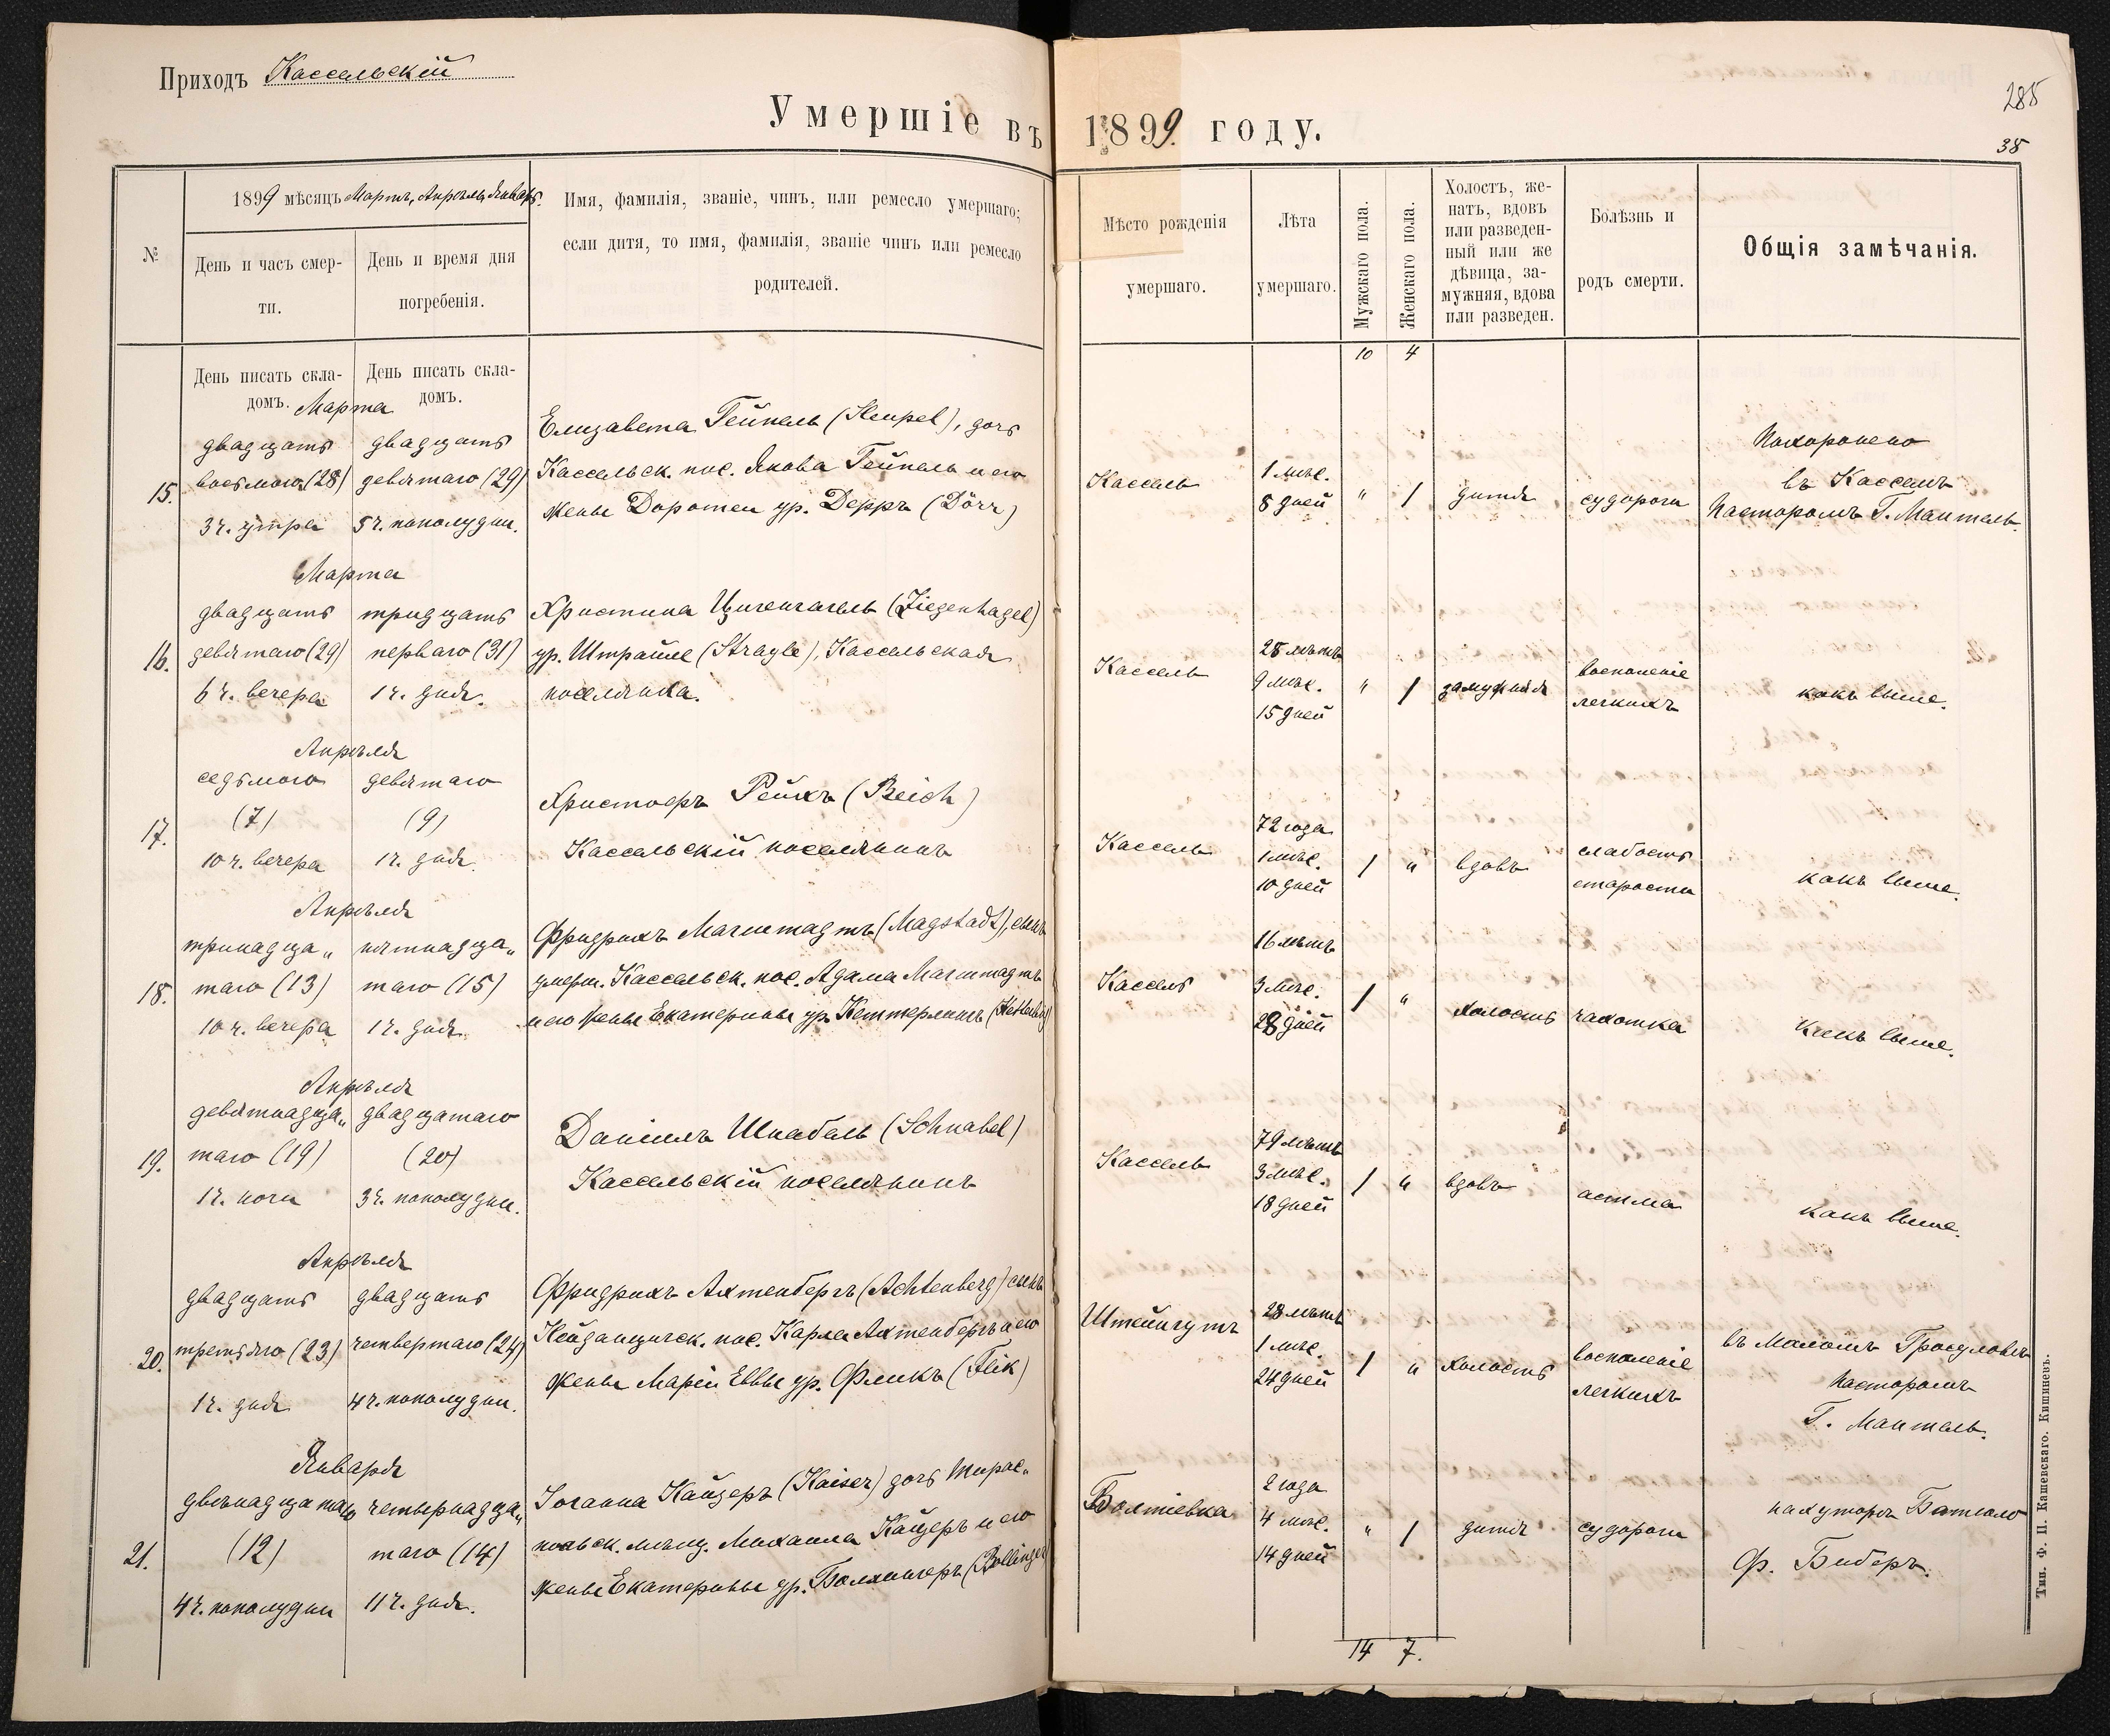 Приходъ Кассельскій
Умершіе въ 1899 году.
285
38
№
1899 мѣсяцъ Мартъ, Апрѣль, Январь.
День и часъ смер-
ти.
День и время дня
погребенія.
Имя, фамилія, званіе, чинъ, или ремесло умершаго;
если дитя, то имя, фамилія, званіе чинъ или ремесло
родителей.
Мѣсто рожденія
умершаго.
Лѣта
умершаго.
Мужскаго пола.
Женскаго пола.
Холостъ, же-
натъ, вдовъ
или разведен-
ный или же
дѣвица, за-
мужняя, вдова
или разведен.
Болѣзнь и
родъ смерти.
Общія замѣчанія.
День писать скла-
домъ.
День писать скла-
домъ.
10 4
Марта
15.
двадцать
восьмого (28)
3 ч. утра
двадцать
девятаго (29)
5 ч. пополудни.
Елизавета Гейпель (Heupel), дочь
Кассельск. пос. Якова Гейпель и его
жены Доротеи ур. Дерръ (Dörr)
Кассель
1 мѣс.
8 дней
" 1
дитя
судороги
Похоронено
въ Касселѣ
Пасторомъ Г. Манталь.
Марта
16.
двадцать
девятаго (29)
6 ч. вечера
тридцать
перваго (31)
1 ч. дня.
Христина Цигенгагель (Ziegenhagel)
ур. Штрайле (Strayle), Кассельская
поселянка.
Кассель
28 лѣтъ
9 мѣс.
15 дней
" 1
замужняя
воспаленіе
легкихъ
какъ выше.
Апрѣля
17.
седьмого
(7)
10 ч. вечера
девятаго
(9)
1 ч. дня.
Христофръ Рейхъ (Reich)
Кассельскій поселянинъ
Кассель
72 года
1 мѣс.
10 дней
1 "
вдовъ
слабость
старости
какъ выше.
Апрѣля
18.
тринадца„
таго (13)
10 ч. вечера
пятнадца„
таго (15)
1 ч. дня
Фридрихъ Магштадтъ (Magstadt), сынъ
умерш. Кассельск. пос. Адама Магштадтъ
и его жены Екатерины ур. Кеттерлингъ
Кассель
16 лѣтъ
3 мѣс.
28 дней
1 "
холостъ
чахотка
какъ выше.
Апрѣля
19.
девятнадца„
таго (19)
1 ч. ночи
двадцатаго
(20)
3 ч. пополудни.
Даніилъ Шнабель (Schnabel)
Кассельскій поселянинъ
Кассель
79 лѣтъ
3 мѣс.
18 дней
1 "
вдовъ
астма
какъ выше.
Апрѣля
20.
двадцать
третьяго (23)
1 ч. дня
двадцать
четвертаго (24)
4 ч. пополудни.
Фридрихъ Ахтенбергъ (Achtenberg) сынъ
Нейданцигск. пос. Карла Ахтенбергъ и его
жены Маріи Еввы ур. Фликъ (Flik)
Штейнгутъ
28 лѣтъ
1 мѣс.
24 дней
1 "
холостъ
воспаленіе
легкихъ
въ Маломъ Гросуловѣ
пасторомъ
Г. Манталь.
Января
21.
двѣнадцатаго
(12)
4 ч. пополудни
четырнадца„
таго (14)
11 ч. дня.
Іоганна Кайзеръ (Kaiser) дочь Тирас„
польск. мѣщ. Михаила Кайзеръ и его
жены Екатерины ур. Боллингеръ (Bollinger)
Болтіевка
2 года
4 мѣс.
14 дней
" 1
дитя
судороги
на хуторѣ
Ф. Биберъ.
14 7.
Тип. Ф. П. Кашевскаго. Кишиневъ.